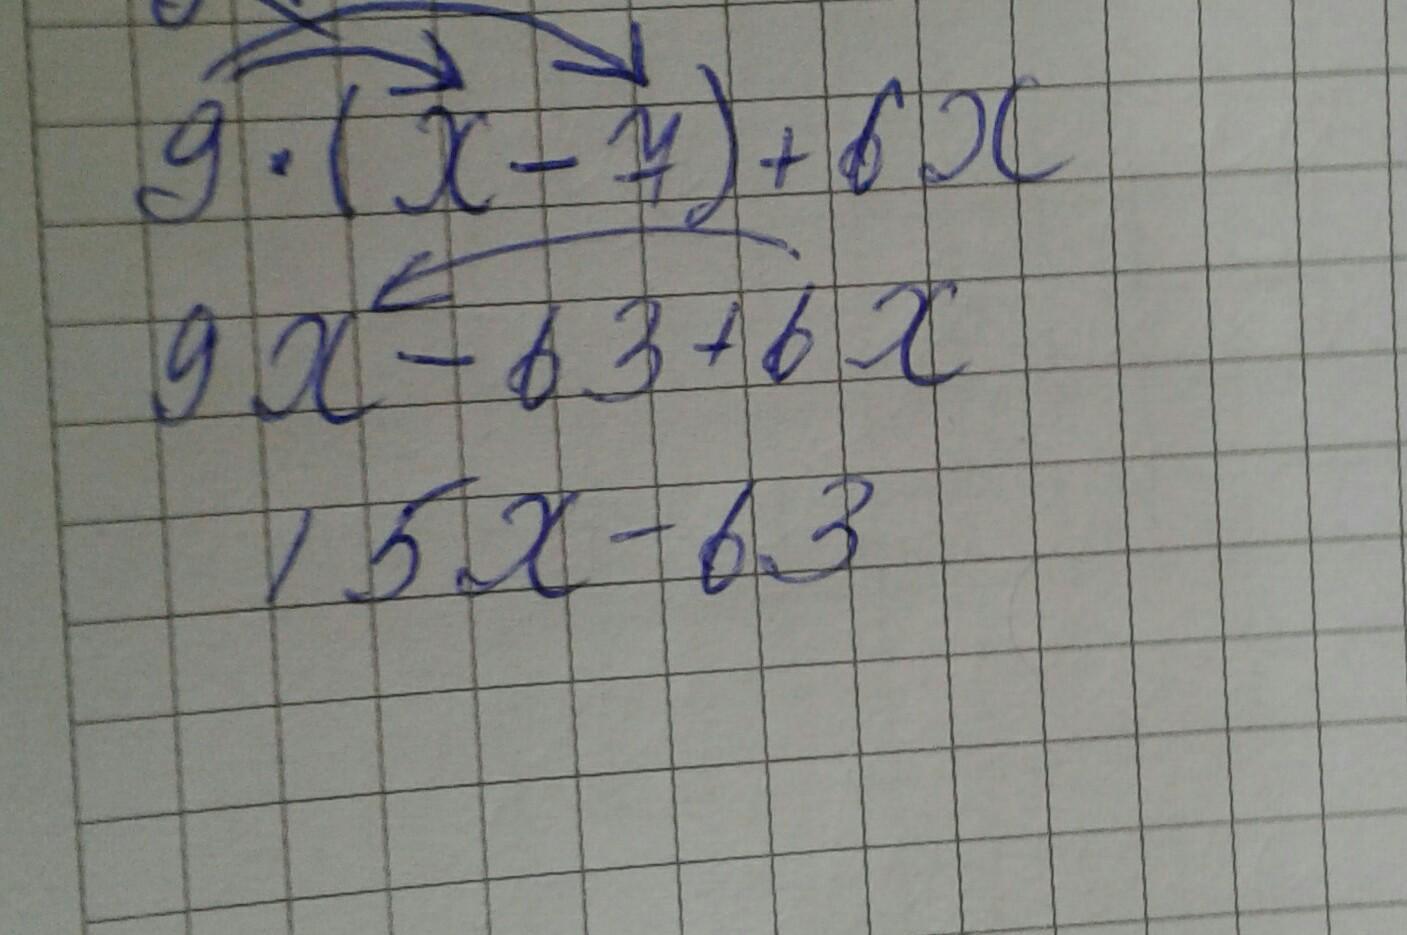 9 · (x - 7) + 6x
9x - 63 + 6x
15x - 63